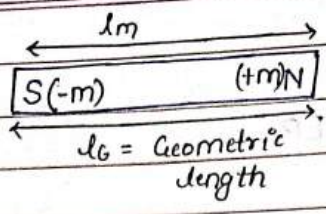 lm
S(-m) (+m)N
lG = Geometric
length